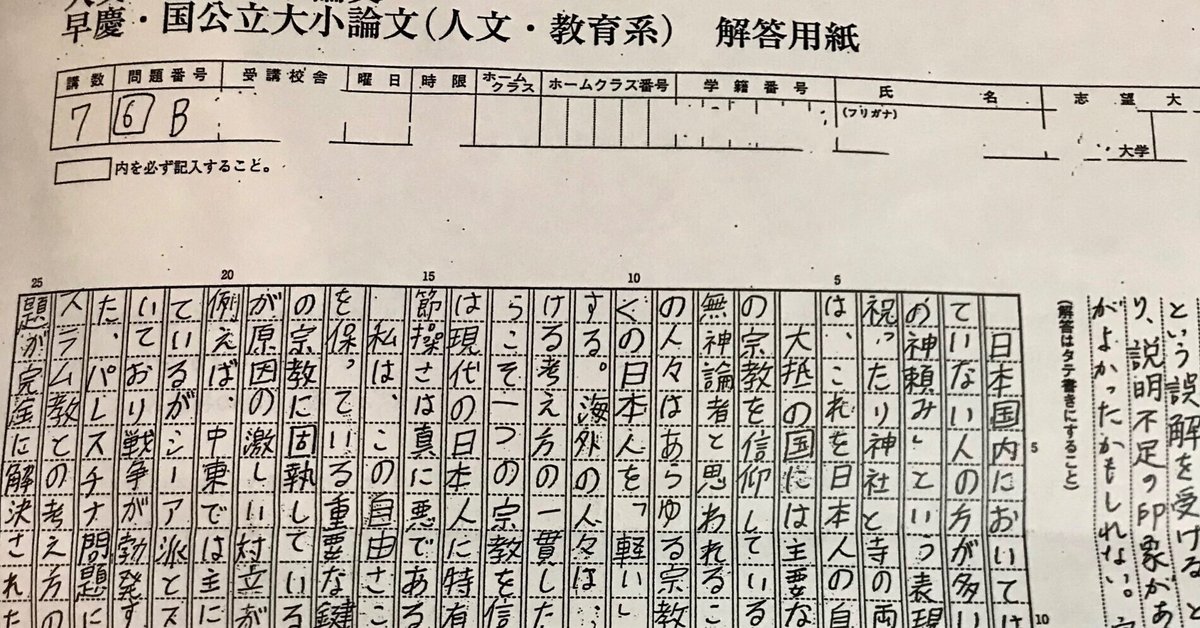 早慶・国公立大小論文(人文・教育系) 解答用紙
講数 問題番号 受講校舎 曜日 時限 ホームクラス ホームクラス番号 学籍番号 氏名 志望大
7 6 B (フリガナ) 大学
内を必ず記入すること。
という誤解を受けると
り、説明不足の印象があ
がよかったかもしれない。
(解答はタテ書きにすること)
5 10 15 20 25
5
10
日本国内においては
ていない人の方が多い
め神頼み」という表現
祝ったり神社と寺の両
は、これを日本人の自
大抵の国には主要な
の宗教を信仰している
無神論者と思われるこ
の人々はあらゆる宗教
くの日本人を「軽い」
する。海外の人々は…
ける考え方の一貫した
らこそ一つの宗教を信
は現代の日本人に特有
節操さは真に悪である
私は、この自由さこ
を保っている重要な鍵
の宗教に固執している
が原因の激しい対立が
例えば、中東では主に
ているがシーア派とス
いており戦争が勃発す
た、パレスチナ問題
スラム教との考え方の
題が完全に解決された